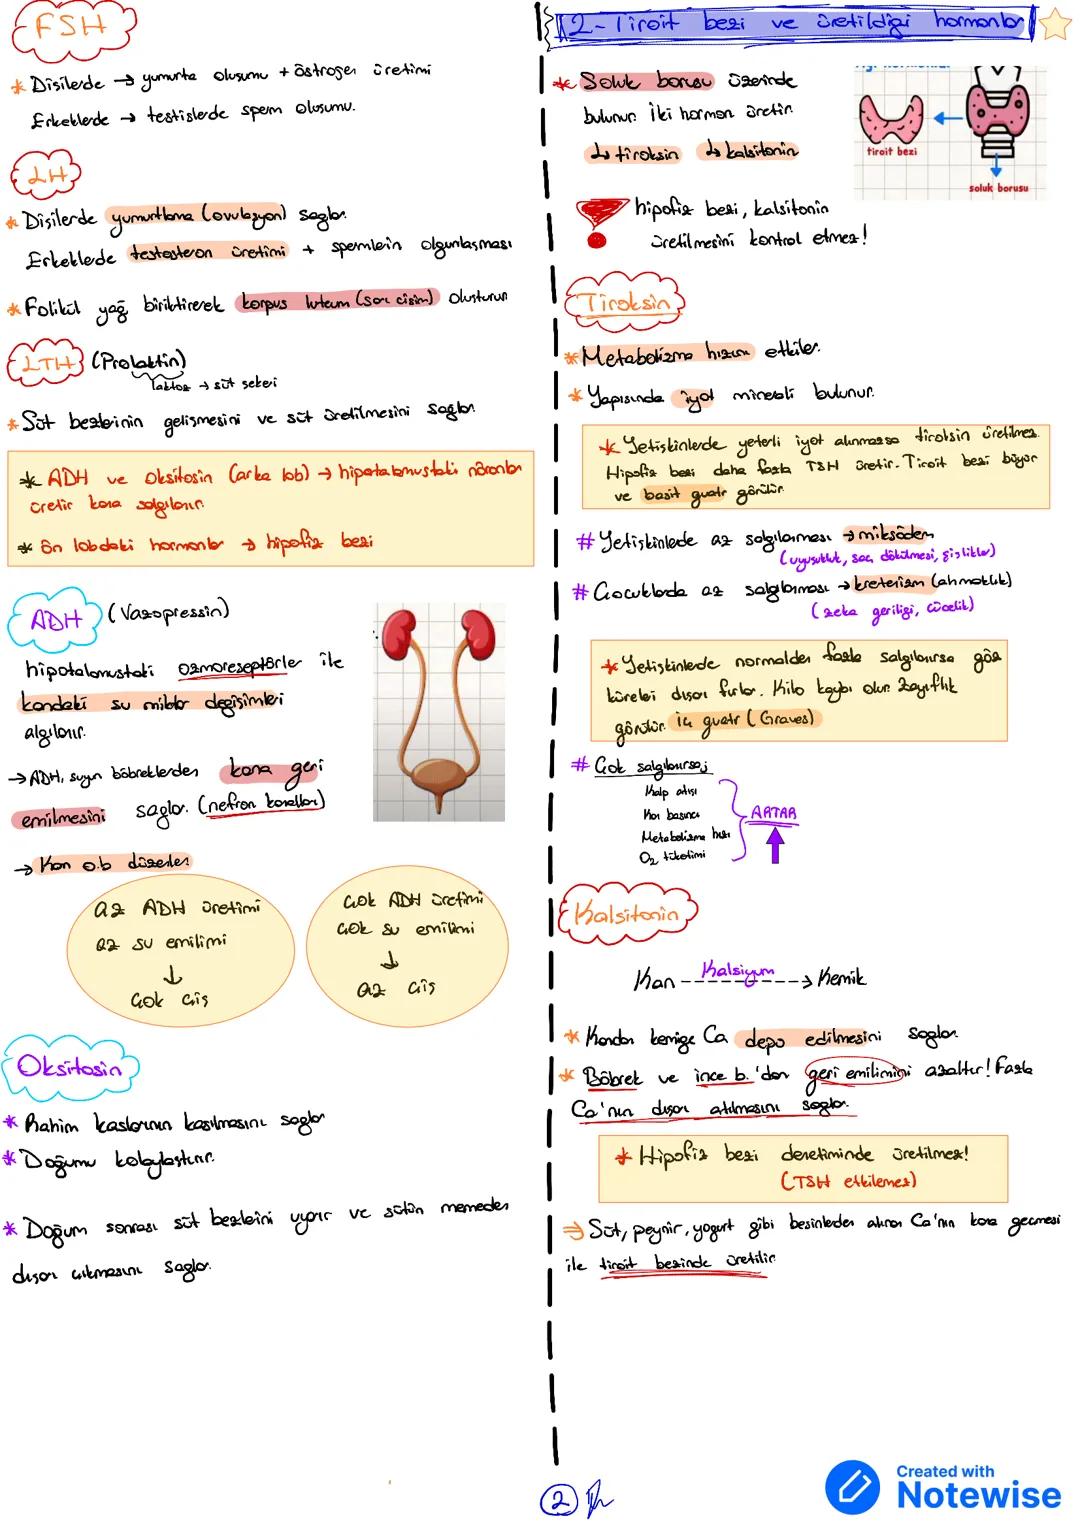 FSH
* Dişilerde → yumurta oluşumu + östrojen üretimi
Erkeklerde → testislerde sperm oluşumu.
LH
* Dişilerde yumurtlama (ovulasyon) sağlar.
Erkeklerde testosteron üretimi + spermlerin olgunlaşması
* Folikül yağ biriktirerek korpus luteum (sarı cisim) oluşturur
LTH (Prolaktin)
laktoz → süt şekeri
* Süt bezlerinin gelişmesini ve süt üretilmesini sağlar.
* ADH ve Oksitosin (arka lob) → hipotalamustaki nöronlar
üretir kana salgılanır.
* Ön lobdaki hormonlar → hipofiz bezi
ADH (Vazopressin)
hipotalamustaki ozmoreseptörler ile
kandaki su miktar değişimleri
algılanır.
→ ADH, suyun böbreklerden kana geri
emilmesini sağlar. (nefron kanalları)
→ Kan o.b düzenler
az ADH üretimi
az su emilimi
↓
çok çiş
çok ADH üretimi
çok su emilimi
↓
az çiş
Oksitosin
* Rahim kaslarının kasılmasını sağlar
* Doğumu kolaylaştırır.
* Doğum sonrası süt bezlerini uyarır ve sütün memeden
dışarı çıkmasını sağlar.
2-Tiroit bezi ve ürettiği hormonlar
* Soluk borusu üzerinde
bulunur. İki hormon üretir.
↳ tiroksin ↳ kalsitonin
tiroit bezi
soluk borusu
hipofiz bezi, kalsitonin
üretilmesini kontrol etmez!
Tiroksin
* Metabolizma hızını etkiler.
* Yapısında iyot minerali bulunur.
* Yetişkinlerde yeterli iyot alınmazsa tiroksin üretilmez.
Hipofiz bezi daha fazla TSH üretir. Tiroit bezi büyür
ve basit guatr görülür.
# Yetişkinlede az salgılanması → miksödem
(uyuşukluk, saç dökülmesi, şişlikler)
# Çocuklarda az salgılanması → kretenizm (ahmaklık)
(zeka geriliği, cücelik)
* Yetişkinlerde normalden fazla salgılanırsa göz
küreleri dışarı fırlar. Kilo kaybı olur. Zayıflık
görülür. iç guatr (Graves)
# Çok salgılanırsa;
Kalp atışı
Kan basıncı
Metabolizma hızı
O₂ tüketimi
ARTAR
Kalsitonin
Kan Kalsiyum → Kemik
* Kandan kemiğe Ca depo edilmesini sağlar.
* Böbrek ve ince b.'dan geri emilimini azaltır! Fazla
Ca'nın dışarı atılmasını sağlar.
* Hipofiz bezi denetiminde üretilmez!
(TSH etkilemez)
⇒ Süt, peynir, yoğurt gibi besinlerden alınan Ca'nın kana geçmesi
ile tiroit bezinde üretilir.
2
Created with
Notewise